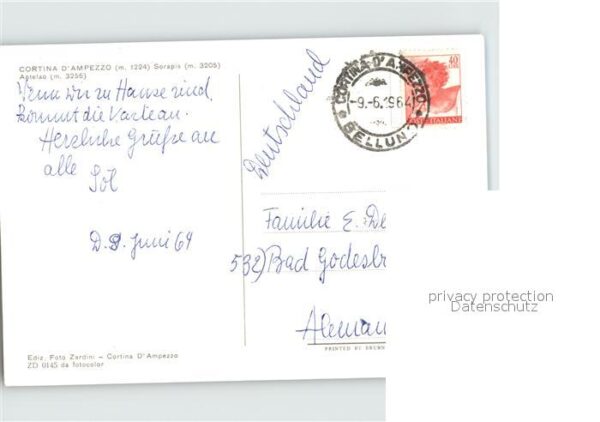 CORTINA D'AMPEZZO (m. 1224) Sorapis (m. 3205)
Antelao (m. 3256)
Wenn wir zu Hause sind,
kommt die Karte an.
Herzliche Grüße an
alle
D. 9. Juni 64
Deutschland
CORTINA D'AMPEZZO
-9.-6.1964
BELLUNO
40
POSTE ITALIANE
Familie E. De
532) Bad Godesb
Aleman
PRINTED BY
Ediz. Foto Zardini - Cortina D'Ampezzo
ZD 0145 da fotocolor
privacy protection
Datenschutz